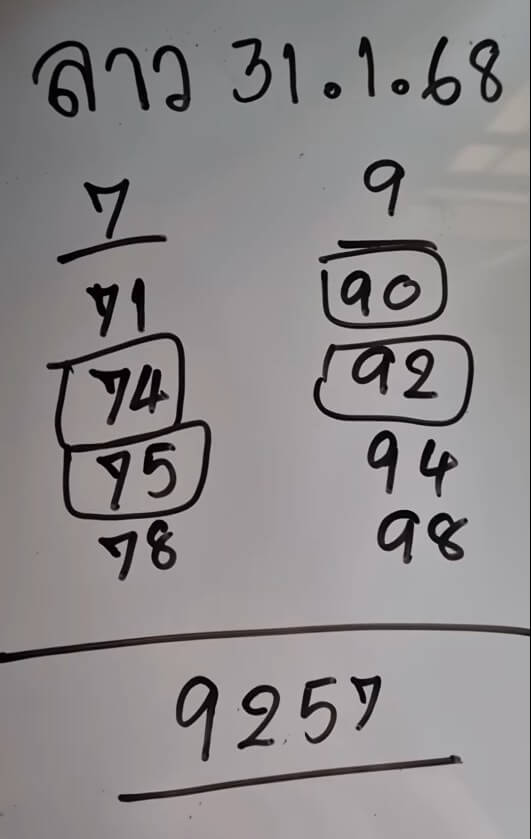 ลาว 31.1.68
7 9
71 90
74 92
75 94
78 98
9257